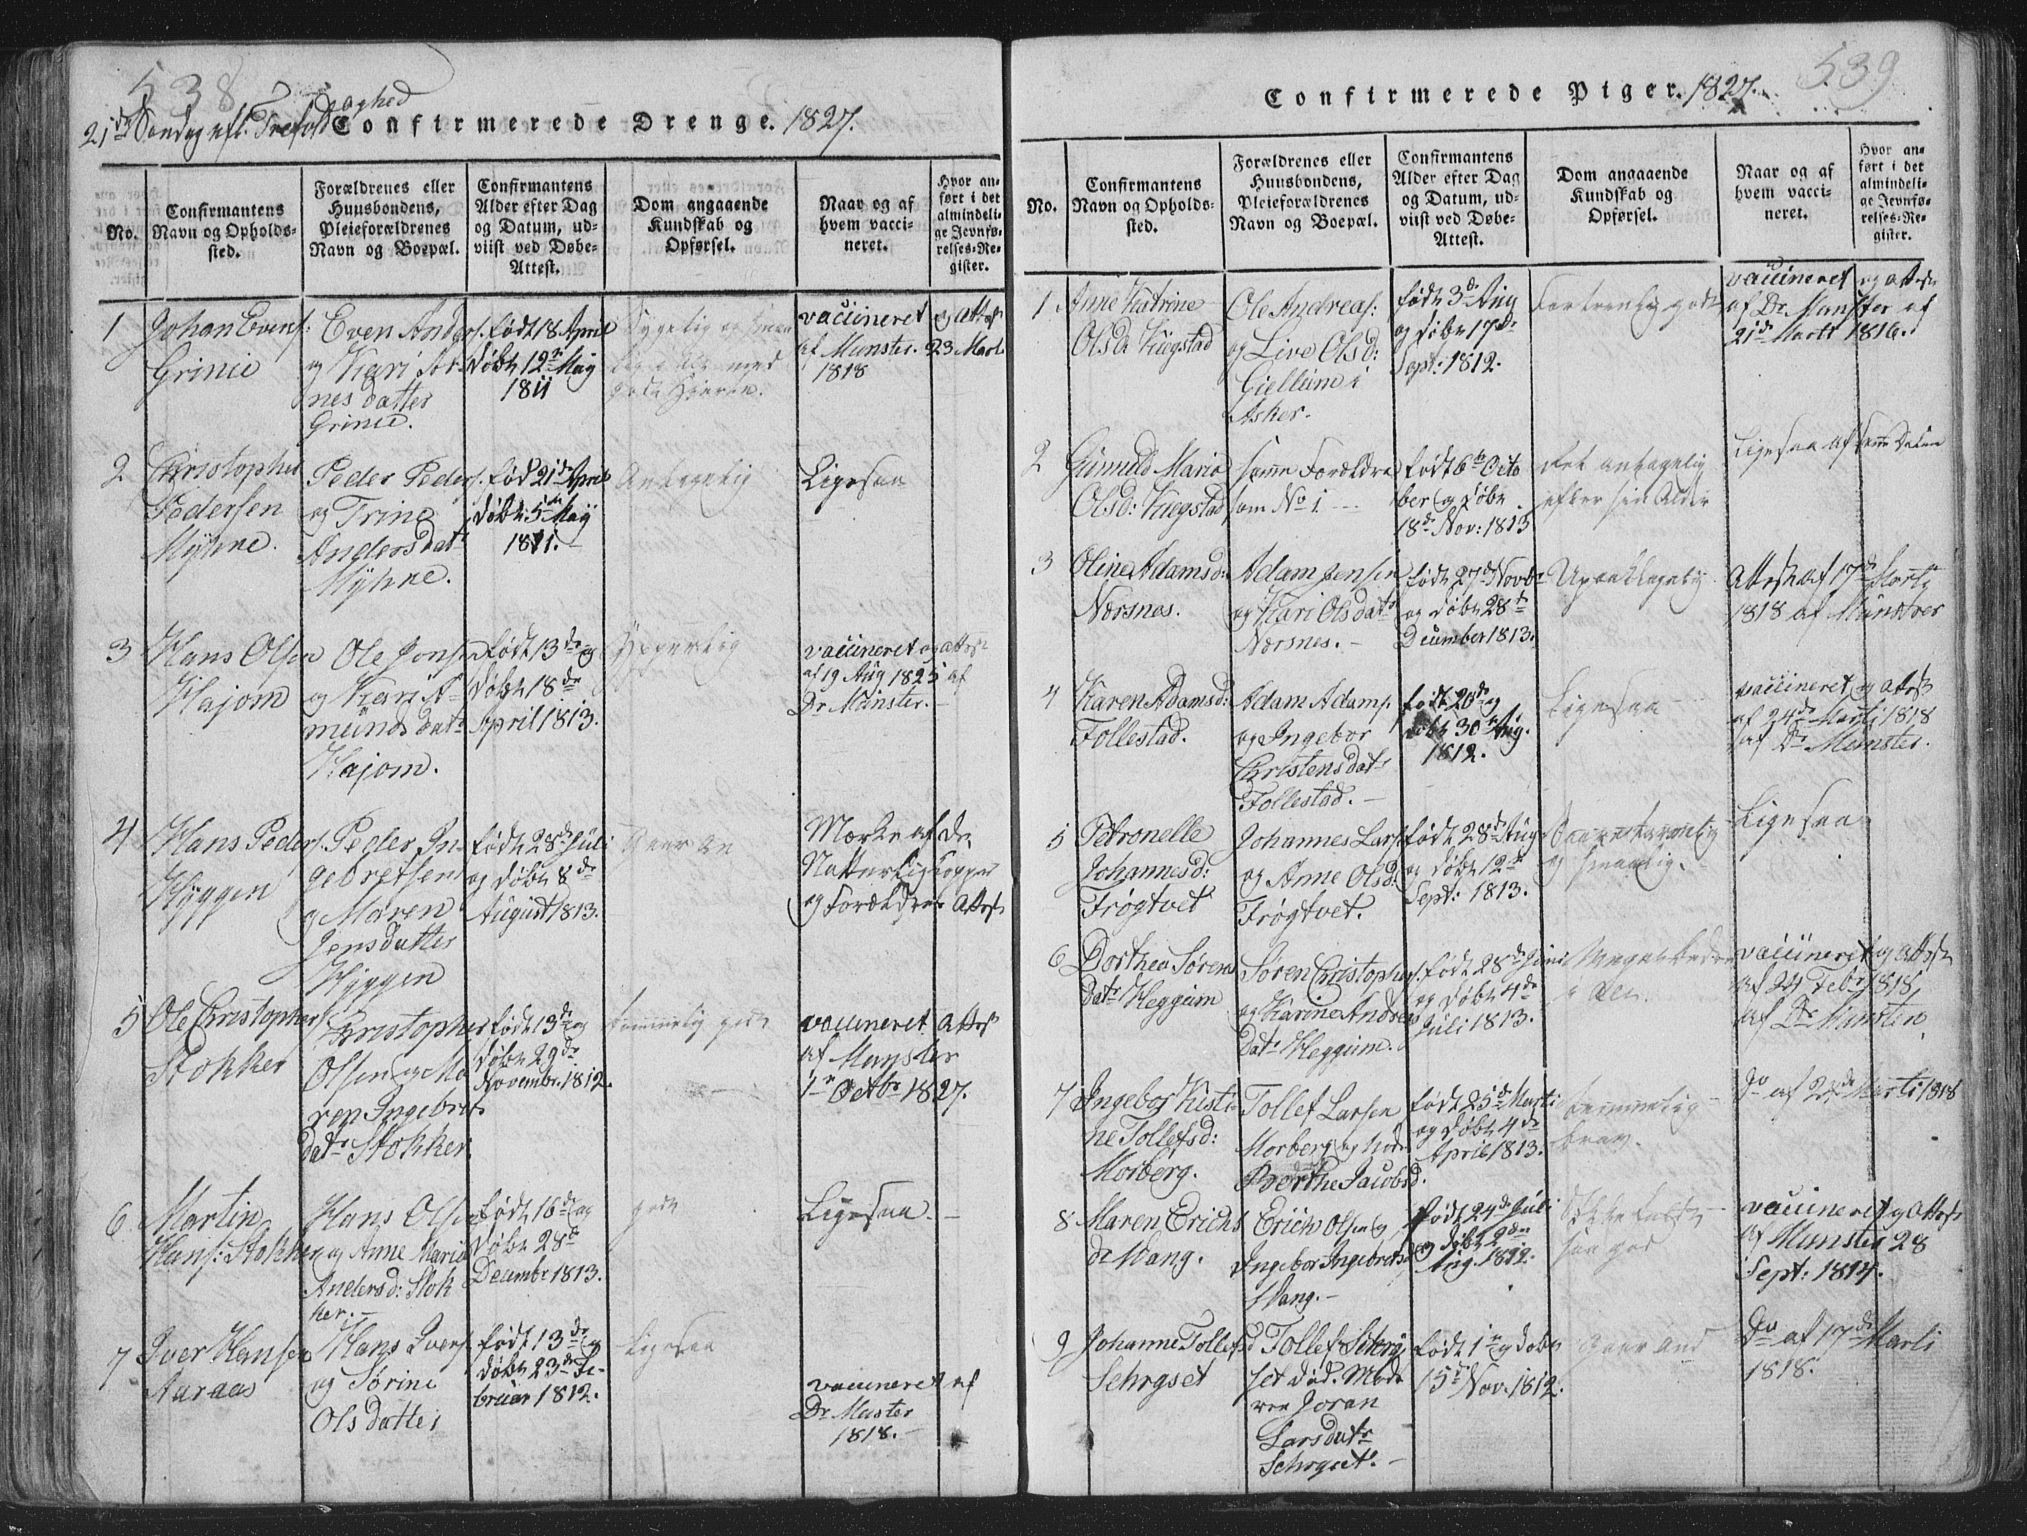 538
21de Søndag eft. Trefoldighed
Confirmerede Drenge. 1827.
No.
Confirmantens
Navn og Opholds-
sted.
Forældrenes eller
Huusbondens,
Pleieforældrenes
Navn og Boepæl.
Confirmantens
Alder efter Dag
og Datum, ud-
viist ved Døbe-
Attest.
Dom angaaende
Kundskab og
Opførsel.
Naar og af
hvem vacci-
neret.
Hvor an-
ført i det
almindeli-
ge Jevnfø-
relses-Re-
gister.
1
Johan Evens:
Grinie
Even Anders.
og Kari Ar-
nesdatter
Grinie.
født 18 April
døbt 12te May
1811
vaccineret og Attest
af Munster. 23 Marti
1818
2
Christopher
Pedersen
Myhre.
Peder Peders.
og Trine
Andersdatr
Myhre.
fød 21de April
døbt 5te May
1811.
Antagelig
Ligesaa
3
Hans Olsen
Hajom
Ole Jonsen
og Kari A-
mundsdatr
Hajom.
født 13de og
døbt 18de
April 1813.
vaccineret og attest
af 19 Aug 1825 af
Dr Munster.
4
Hans Peders.
Hyggen
Peder In-
gebretsen
og Maren
Jensdatter
Hyggen
født 28de Juli
og døbt 8de
August 1813.
Gaar an
Mærke af de
Naturlig Kopper
og Forældres Attest
5
Ole Christophers.
Stokker
Christopher
Olsen og Ma-
ren Ingebrets
datr Stokker.
født 3de og
døbt 29de
Novembr. 1812.
temmelig godt
vaccineret Attest
af Munster
1te Octbr 1827.
6
Martin
Hans: Stokker
Hans Olsen
og Anne Maria
Andersd: Stok
ker.
født 16de og
døbt 28de
Decembr 1813.
godt
Ligesaa.
7
Iver Hansen
Aaraas
Hans Ivers.
og Sørine
Olsdatter
født 13de og
døbt 23de Fe-
bruar 1812.
Ligesaa
vaccineret af
Dr Muster
1818.
539
Confirmerede Piger. 1827.
No.
Confirmantens
Navn og Opholds-
sted.
Forældrenes eller
Huusbondens,
Pleieforældrenes
Navn og Boepæl.
Confirmantens
Alder efter Dag
og Datum, ud-
viist ved Døbe-
Attest.
Dom angaaende
Kundskab og
Opførsel.
Naar og af
hvem vacci-
neret.
Hvor an-
ført i det
almindeli-
ge Jevnfø-
relses-Re-
gister.
1
Anne Katrine
Olsdr Kiegstad
Ole Andreas:
og Live Olsd:
Giellum i
Asker.
født 3de Aug
og døbt 17de
Sept: 1812.
Fortrinlig godt
vaccineret og attest
af Dr. Munster af
21de Martt 1816.
2
Gunuld Maria
Olsd: Kiegstad
samme Forældre
som No 1.
født 6te Octo
ber og døbt
18de Nov: 1813
Ret antagelig
efter sin Alder
Ligesaa af samme Datum
3
Oline Adamsd:
Nærsnes.
Adam Jensen
og Kari Olsdatr
Nærsnes.
født 27de Novbr
og døbt 28de
December 1813.
Upaaklagelig
Attest af 17de Marti
1818 af Munster
4
Karen Adamsd:
Follestad.
Adam Adams.
og Ingebor
Christensdatr
Follestad.
født 20de og
døbt 30te Aug.
1812.
Ligesaa
vaccineret og attest
af 24de Marti 1818
af Dr Munster.
5
Petronelle
Johannesd:
Frøgtvet
Johannes Lars.
og Anne Olsd:
Frøgtvet.
født 28de Aug
og døbt 12te
Sept: 1813.
Ligesaa
6
Dorthea Sørens
datr Heggum
Søren Christophers.
og Karine Andrea
datr Heggum.
født 28de Juni
og døbt 4de
Juli 1813.
vaccineret og attest
af 24 Febr 1818
af Dr Munster.
7
Ingebor Kisti
ne Tollefsd:
Morberg.
Tollef Larsen
Morberg og
Berthe Jacobsd.
født 25de Marti
og døbt 4de
April 1813.
temmelig
brav.
Do af 24de Marti 1818
8
Maren Erichs
dr Wang.
Erich Olsen og
Ingebor Ingebretsd
Wang.
født 24de Juli
og døbt 2den
Aug. 1812.
vaccineret og attest
af Munster 28
Sept: 1814.
9
Johanne Tollefsd
Sehogset
Tollef Sehog
set død. Mode
ren Joran
Larsdatr
Sehogset.
født 1te og døbt
15de Nov. 1812.
Gaar and
Do af 17de Marti
1818.